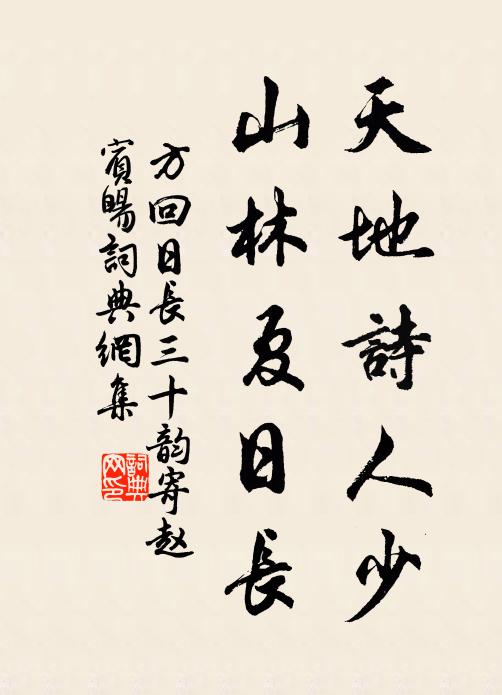 天地詩人少
山林夏日長
方回日長三十韵寄赵
賓暘詞典網集
詞典
网印